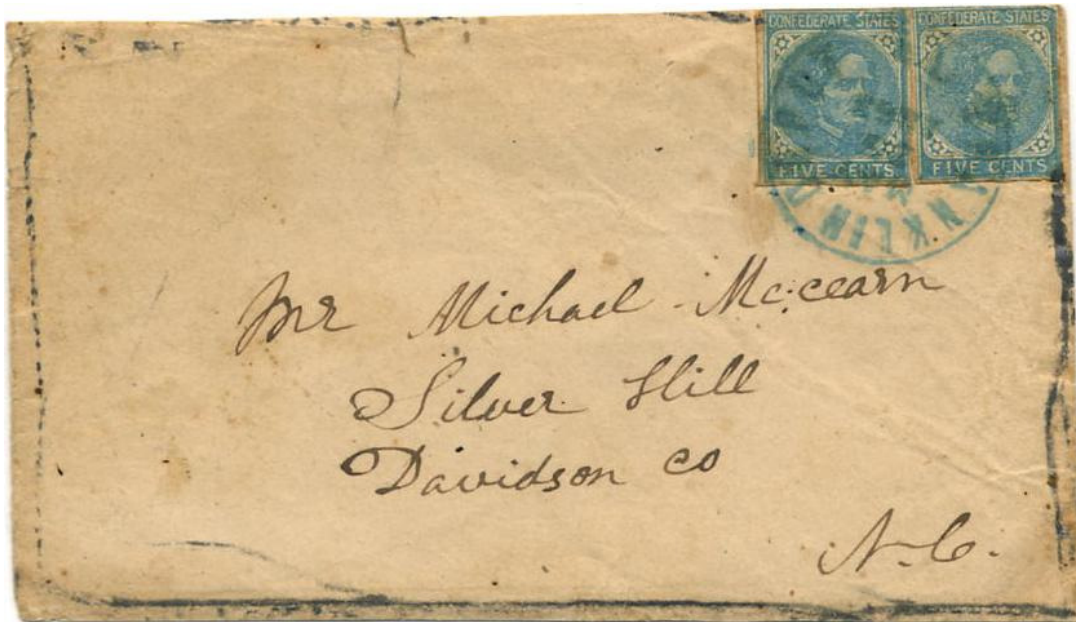 CONFEDERATE STATES CONFEDERATE STATES
FIVE CENTS FIVE CENTS
NKLIN
Mr Michael Mccearn
Silver Hill
Davidson co
N.C.